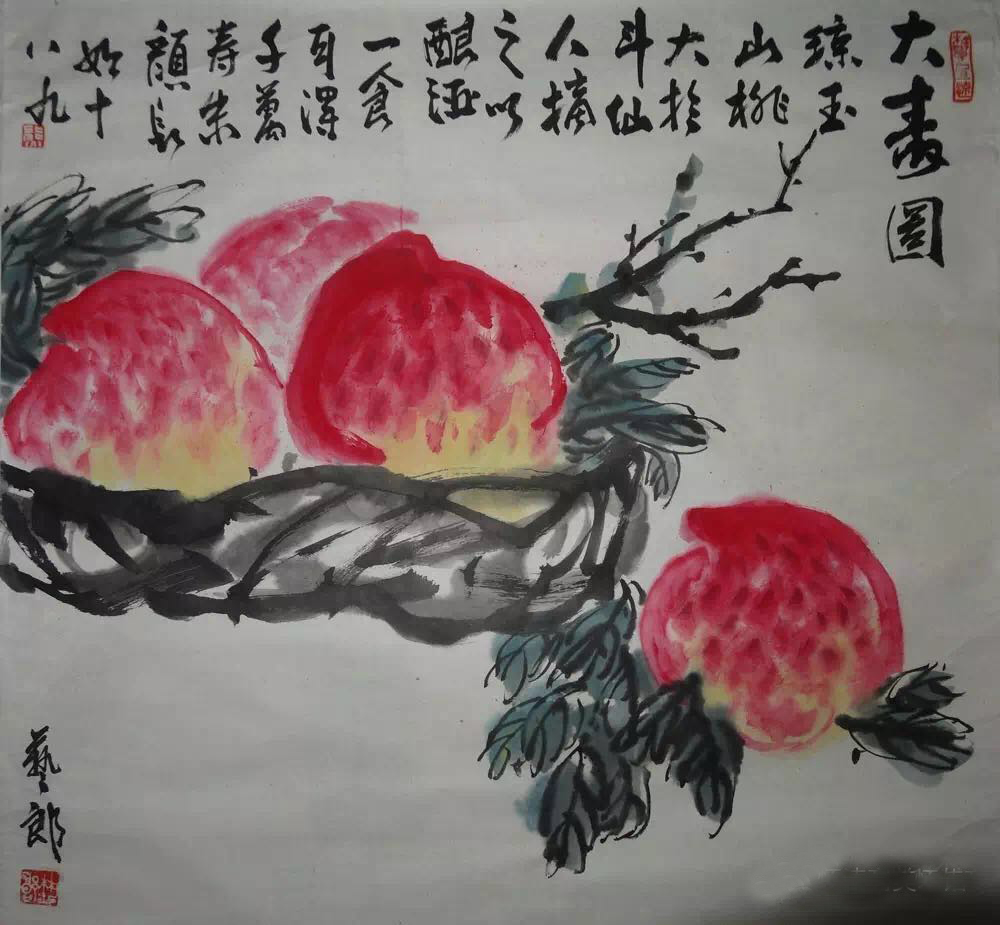 大寿圖
琼玉
山桃
大於
斗仙
人摘
之以
酿酒
一食
可得
千萬
寿朱
顏長
如十
八九
藝郎